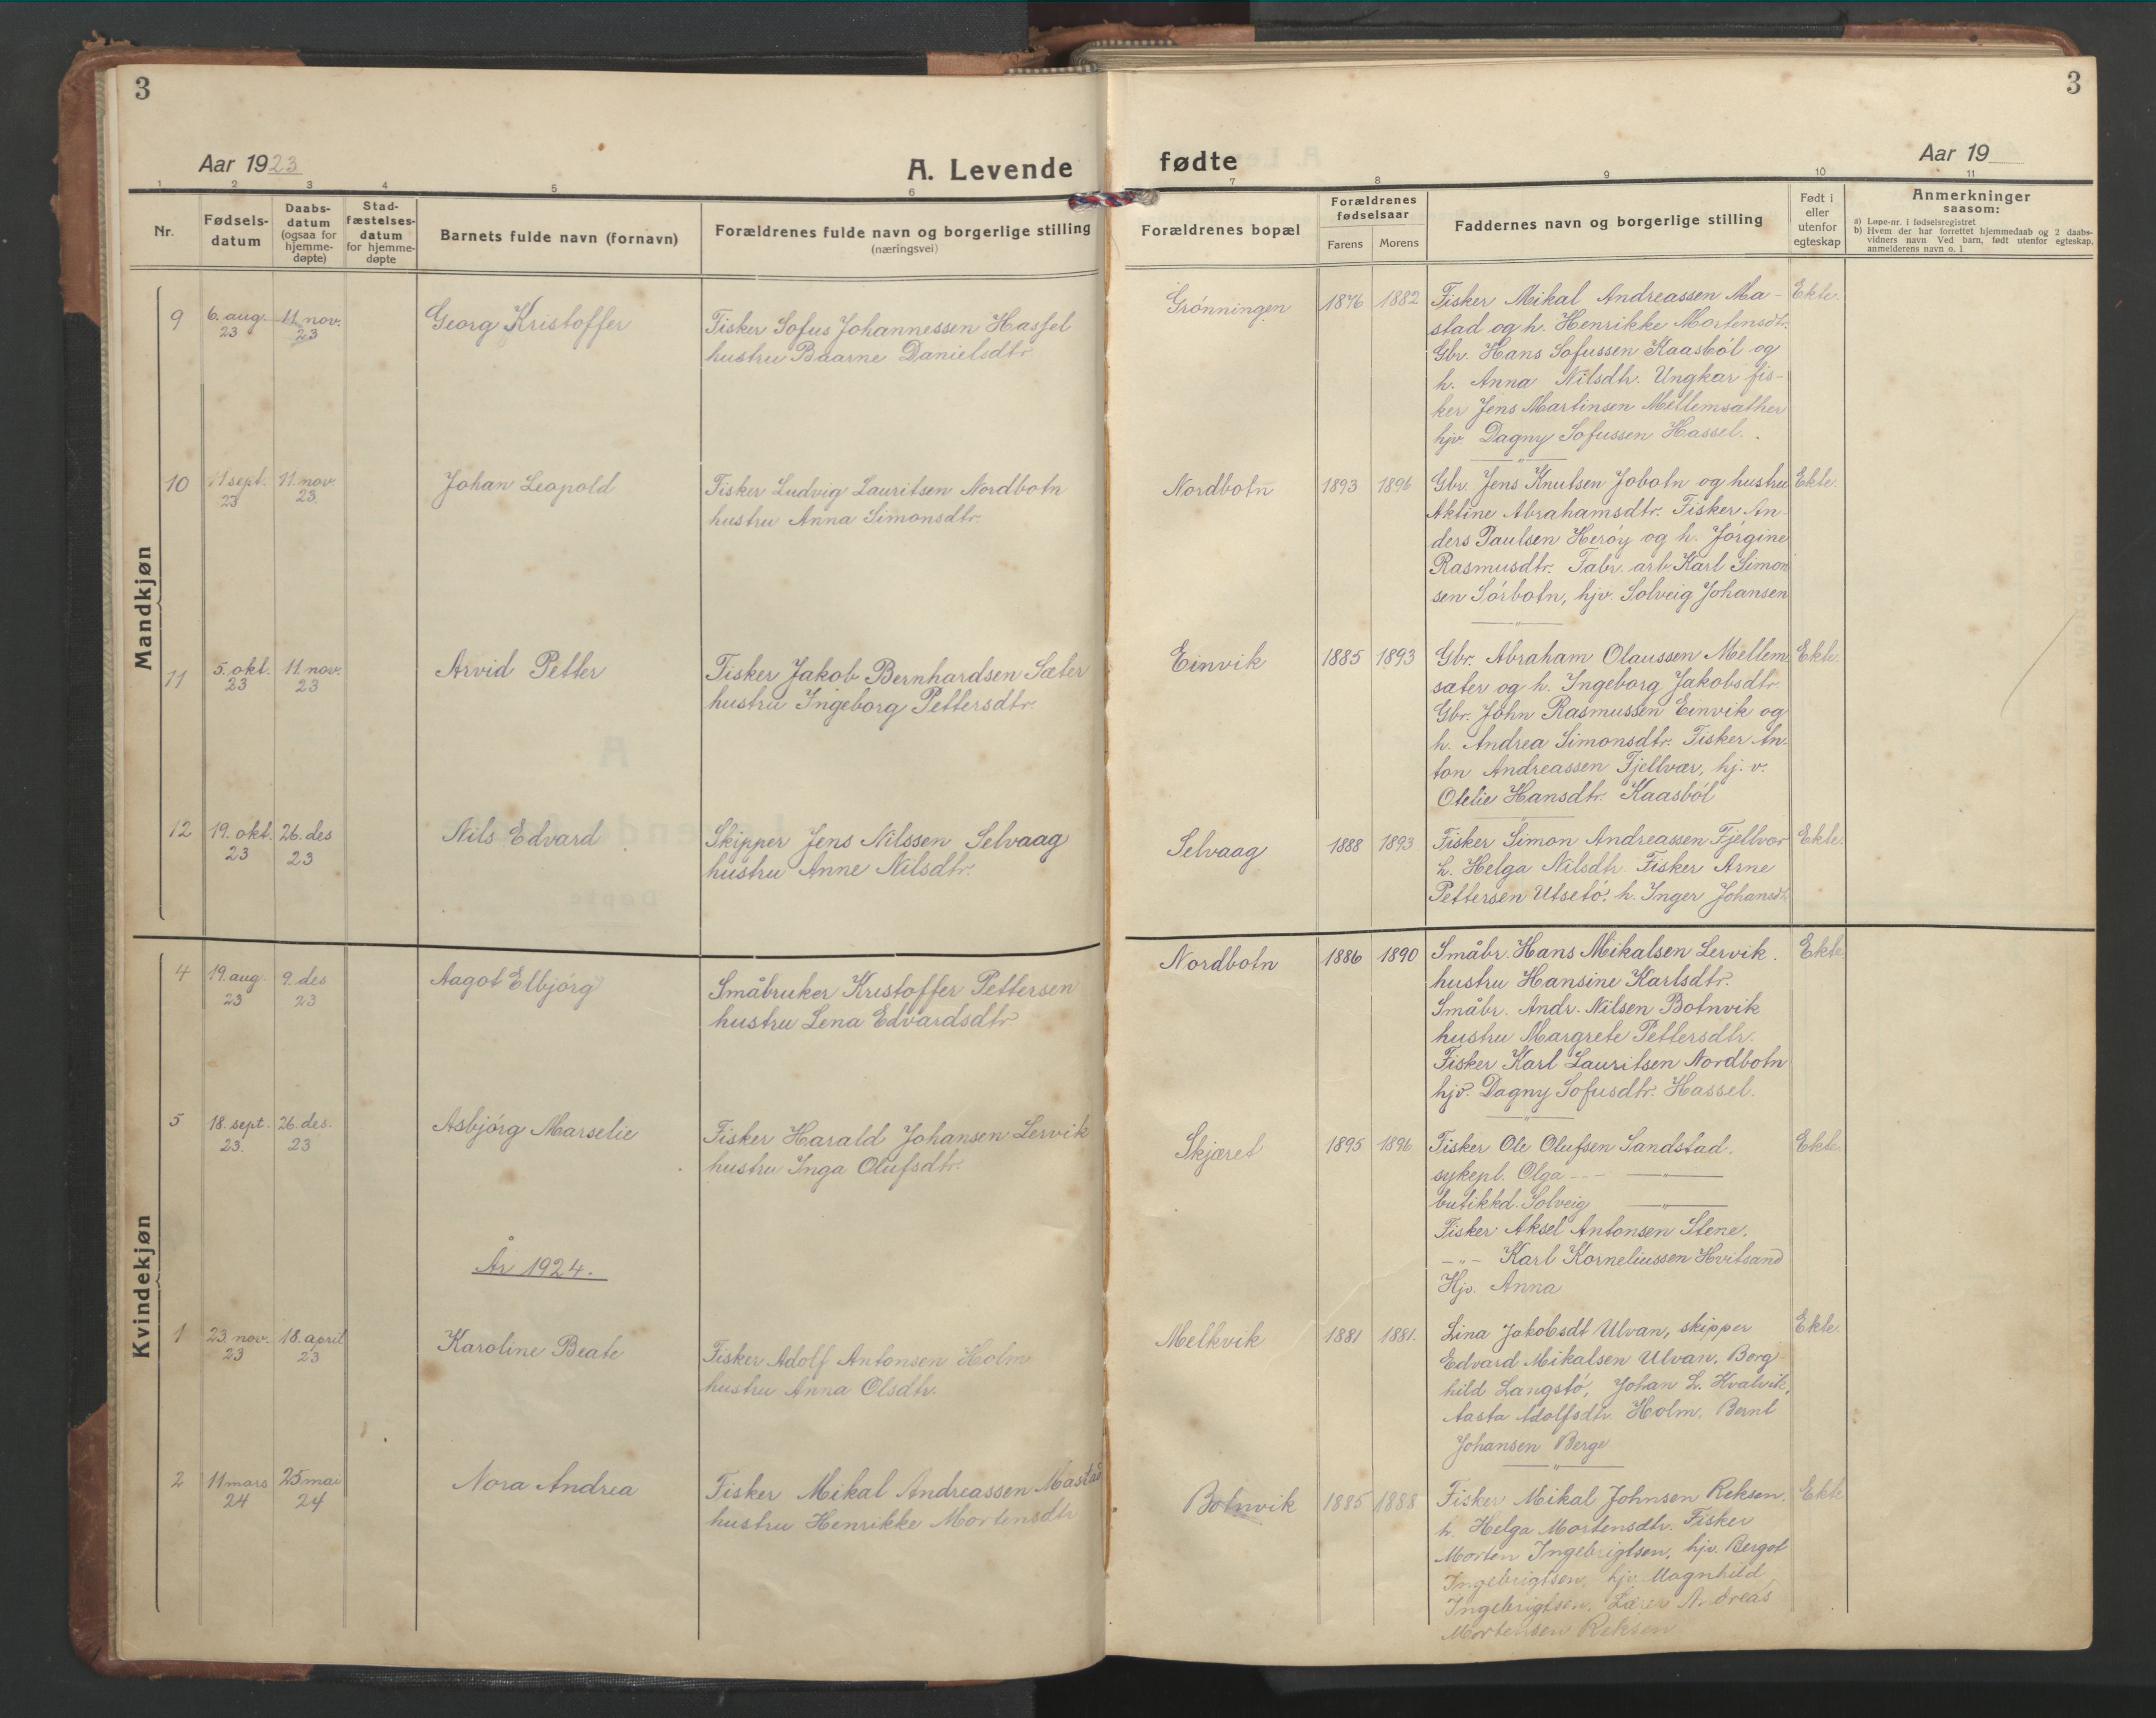 3
Aar 1923
A. Levende
1 2 3 4 5 6
Nr.
Fødsels-
datum
Daabs-
datum
(ogsaa for
hjemme-
døpte)
Stad-
fæstelses-
datum
for hjemme-
døpte
Barnets fulde navn (fornavn)
Forældrenes fulde navn og borgerlige stilling
(næringsvei)
Mandkjøn
9 6. aug. 23 11. nov. 23 Georg Kristoffer
Fisker Sofus Johannessen Hassel
hustru Baarne Danielsdtr.
10 11 sept. 23 11. nov. 23. Johan Leopold
Fisker Ludvig Lauritsen Nordbotn
hustru Anna Simonsdtr.
11 5. okt. 23 11 nov. 23 Arvid Petter
Fisker Jakob Bernhardsen Sæter
hustru Ingeborg Pettersdtr.
12 19. okt. 23 26. des 23 Nils Edvard
Skipper Jens Nilssen Selvaag
hustru Anne Nilsdtr.
Kvindekjøn
4 19. aug. 23 9. des 23 Aagot Elbjórg
Småbruker Kristoffer Pettersen
hustru Lena Edvardsdtr
5 18. sept. 23. 26. des. 23 Asbjórg Marselie
Fisker Harald Johansen Lervik
hustru Inga Olufsdtr.
År 1924.
1 23. nov. 23 18. april 23 Karoline Beate
Fisker Adolf Antonsen Holm
hustru Anna Olsdtr.
2 11 mars 24 25 mai 24 Nora Andrea
Fisker Mikal Andreassen Mastad
hustru Henrikke Mortensdtr
3
fødte
Aar 19
7 8 9 10 11
Forældrenes bopæl
Forældrenes
fødselsaar
Farens Morens
Faddernes navn og borgerlige stilling
Født i
eller
utenfor
egteskap
Anmerkninger
saasom:
a) Løpe-nr. i fødselsregistret
b) Hvem der har forrettet hjemmedaab og 2 daabs-
vidners navn Ved barn, født utenfor egteskap,
anmelderens navn o. l
Grónningen 1876 1882 Fisker Mikal Andreassen Ma- Ekte.
stad og h. Henrikke Mortensdtr.
Gbr. Hans Sofussen Kaasból og
h. Anna Nilsdtr. Ungkar fis-
ker Jens Martinsen Mellemsæther
hjv. Dagny Sofussen Hassel.
Nordbotn 1893 1896 Gbr. Jens Knutsen Jobotn og hustru Ekte.
Aktine Abrahamsdtr. Fisker An-
ders Paulsen Heróy og h. Jórgine
Rasmusdtr. Fabr. arb. Karl Simon
sen Sórbotn, hjv. Solveig Johansen
Einvik 1885 1893 Gbr. Abraham Olaussen Mellem Ekte.
sæter og h. Ingeborg Jakobsdtr
Gbr. John Rasmussen Einvik og
h. Andrea Simonsdtr. Fisker An-
ton Andreassen Fjellvær, hj. v.
Otelie Hansdtr. Kaasból
Selvaag 1888 1893 Fisker Simon Andreassen Fjellvær Ekte.
h. Helga Nilsdtr. Fisker Arne
Pettersen Utsetó. h. Inger Johansdt.
Nordbotn 1886 1890 Småbr. Hans Mikalsen Lervik. Ekte
hustru Hansine Karlsdtr.
Småbr. Andr. Nilsen Botnvik
hustru Margrete Pettersdtr.
Fisker Karl Lauritsen Nordbotn
hjv. Dagny Sofusdtr. Hassel.
Skjæret 1895 1896 Fisker Ole Olufsen Sandstad. Ekte.
sykepl. Olga -- — " —
butikkd. Solveig — " —
Fisker Aksel Antonsen Stene.
— " — Karl Korneliussen Hvitsand
Hjv. Anna
Melkvik 1881 1881. Lina Jakobsdt Ulvan, skipper Ekte.
Edvard Mikalsen Ulvan, Borg-
hild Langstó, Johan L. Hvalvik,
Aasta Adolfsdtr. Holm, Bernt
Johansen Berge
Botnvik 1885 1888 Fisker Mikal Johnsen Reksen. Ekte
h. Helga Mortensdtr. Fisker
Morten Ingebrigtsen, hjv. Berget
Ingebrigtsen, hjv. Magnhild
Ingebrigtsen. Lærer Andreas
Mortensen Reksen